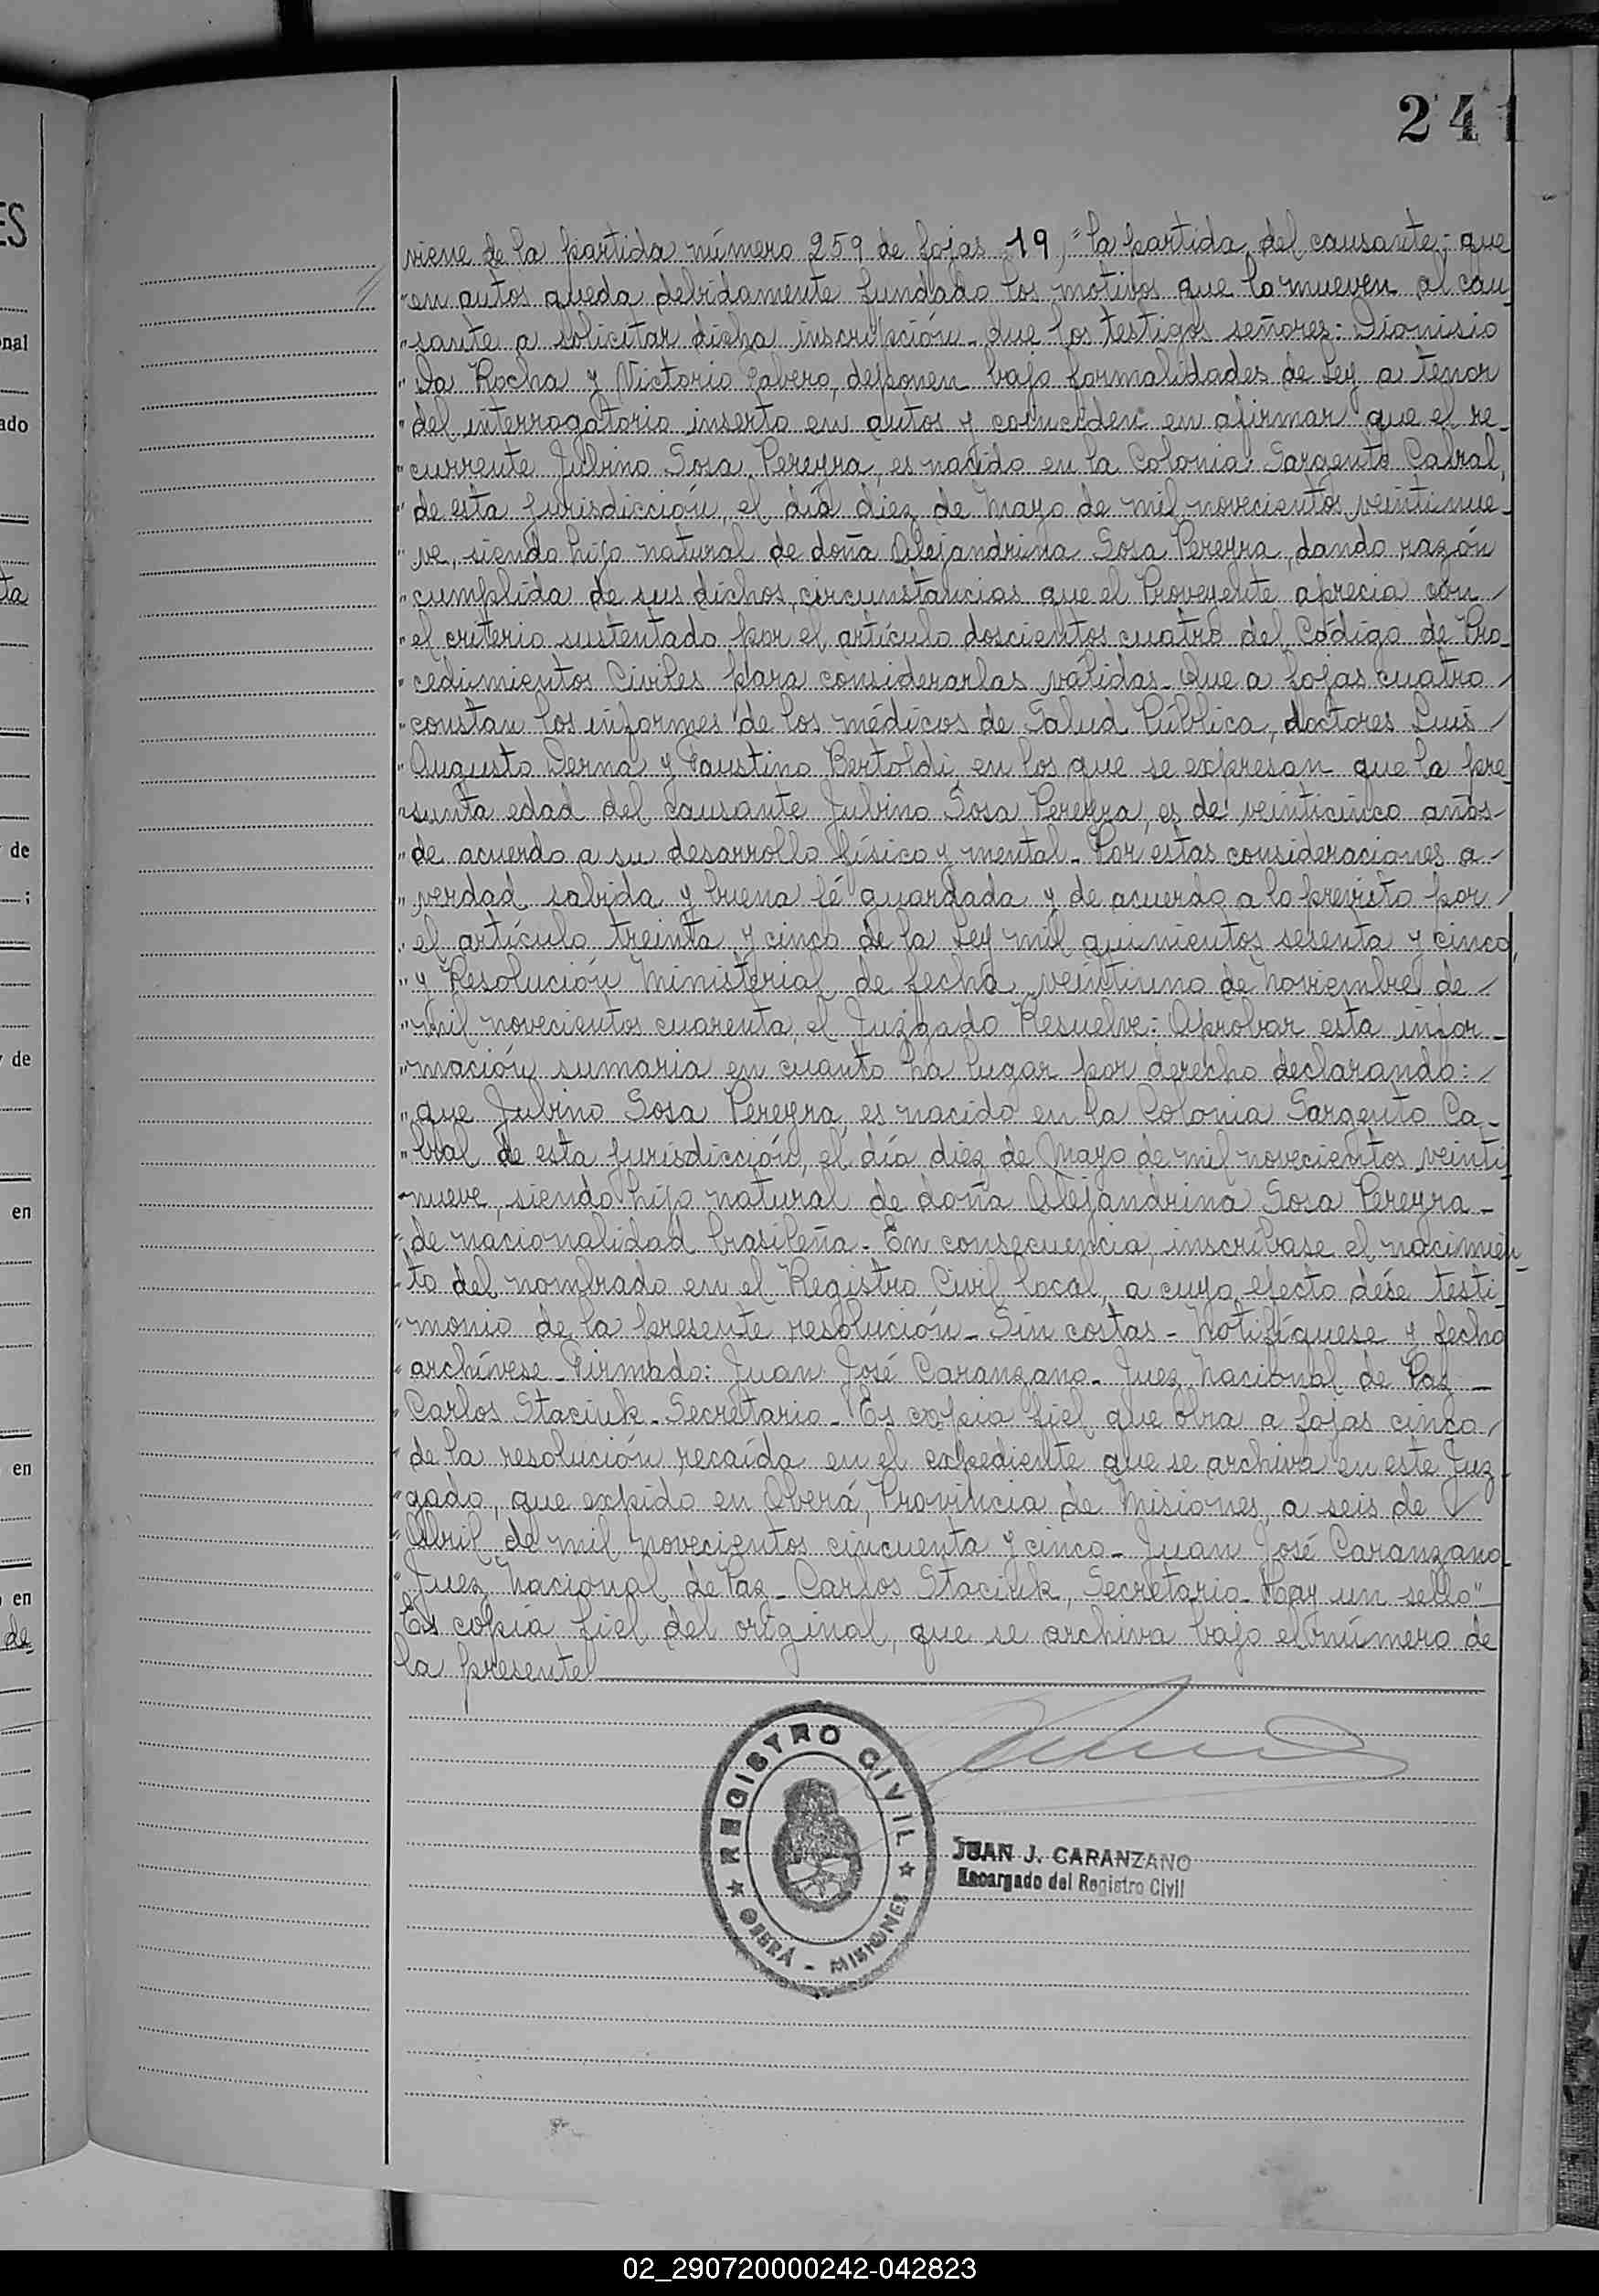 241
viene de la partida número 259 de fojas 19, "la partida del causante; que
"en autos queda debidamente fundado los motivos que lo mueven al cau
"sante a solicitar dicha inscripción_ Que los testigos señores: Dionisio
"Da Rocha y Victorio Cabero, deponen bajo formalidades de Ley a tenor
"del interrogatorio inserto en autos y coinciden en afirmar que el re_
"currente Jubino Sosa Pereyra, es nacido en la Colonia Sargento Cabral,
"de esta jurisdicción, el día diez de Mayo de mil novecientos veintinue_
"ve, siendo hijo natural de doña Alejandrina Sosa Pereyra, dando razón
"cumplida de sus dichos, circunstancias que el Proveyente aprecia con
"el criterio sustentado por el artículo doscientos cuatro del Código de Pro_
"cedimientos Civiles para considerarlas válidas_ Que a fojas cuatro
"constan los informes de los médicos de Salud Pública, doctores Luis
"Augusto Derna y Faustino Bertoldi, en los que se expresan que la pre
"sunta edad del causante Jubino Sosa Pereyra, es de veinticinco años
"de acuerdo a su desarrollo físico y mental_ Por estas consideraciones a
"verdad sabida y buena fé guardada y de acuerdo a lo previsto por
"el artículo treinta y cinco de la Ley mil quinientos sesenta y cinco,
"y Resolución Ministerial de fecha veintiuno de Noviembre de
"mil novecientos cuarenta, el Juzgado Resuelve: Aprobar esta infor_
"mación sumaria en cuanto ha lugar por derecho declarando:
"que Jubino Sosa Pereyra, es nacido en la Colonia Sargento Ca_
"bral de esta jurisdicción, el día diez de Mayo de mil novecientos veinti
"nueve, siendo hijo natural de doña Alejandrina Sosa Pereyra_
"de nacionalidad brasileña_ En consecuencia, inscríbase el nacimien_
"to del nombrado en el Registro Civil local, a cuyo efecto dése testi_
"monio de la presente resolución_ Sin costas_ Notifíquese y fecho
"archívese_ Firmado: Juan José Caranzano_ Juez Nacional de Paz_
"Carlos Staciuk_ Secretario_ Es copia fiel que obra a fojas cinco
"de la resolución recaída en el expediente que se archiva en este Juz_
"gado, que expido en Oberá, Provincia de Misiones, a seis de
"Abril de mil novecientos cincuenta y cinco_ Juan José Caranzano_
"Juez Nacional de Paz_ Carlos Staciuk, Secretario_ Hay un sello"_
Es copia fiel del original, que se archiva bajo el número de
la presente
REGISTRO CIVIL
OBERÁ - MISIONES
JUAN J. CARANZANO
Encargado del Registro Civil
ES
nal
ado
ta
de
i
de
en
en
en
de
02_290720000242-042823